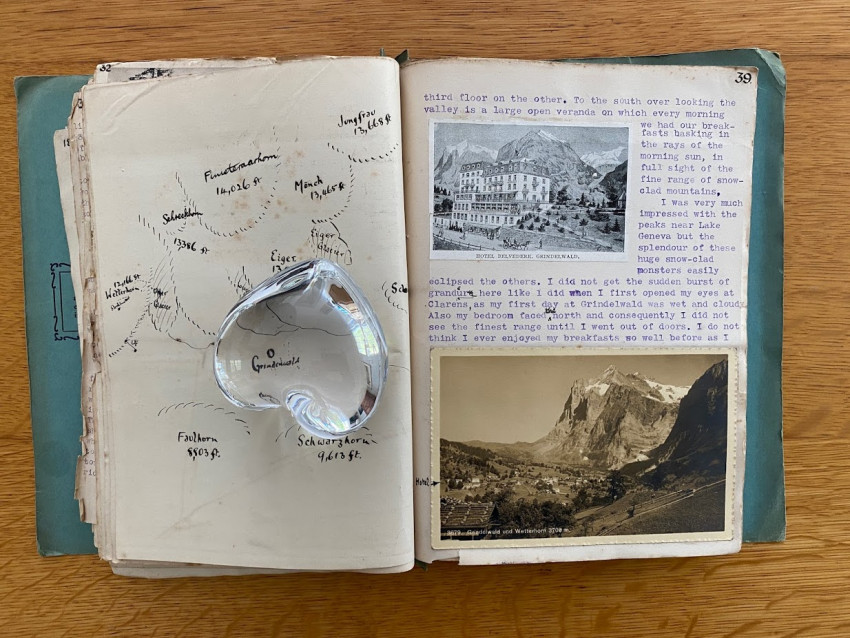 32
Jungfrau
13,668 ft
Finsteraarhorn
14,026 ft
Mönch
13,465 ft
Schreckhorn
13386 ft
Eiger
13
Eiger
Glacier
Wetterhorn
Grindelwald
Faulhorn
8,803 ft.
Schwarzhorn
9,613 ft.
39
third floor on the other. To the south over looking the
valley is a large open veranda on which every morning
we had our break-
fasts basking in
the rays of the
morning sun, in
full sight of the
fine range of snow-
clad mountains,
I was very much
impressed with the
peaks near Lake
Geneva but the
splendour of these
huge snow-clad
monsters easily
HOTEL BELVEDERE, GRINDELWALD.
eclipsed the others. I did not get the sudden burst of
grandure here like I did when I first opened my eyes at
Clarens, as my first day at Grindelwald was wet and cloudy
Also my bedroom faced the north and consequently I did not
see the finest range until I went out of doors. I do not
think I ever enjoyed my breakfasts wo well before as I
Hotel
Grindelwald und Wetterhorn 3708 m.